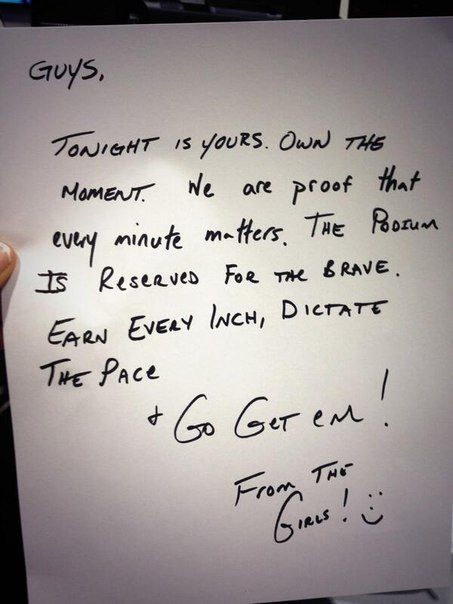 GUYS.
TONIGHT IS YOURS. OWN THE
MOMENT. We are proof that
every minute matters. THE PODIUM
IS RESERVED FOR THE BRAVE.
EARN EVERY INCH, DICTATE
THE PACE
+ GO GET EM!
FROM THE
GIRLS! :)